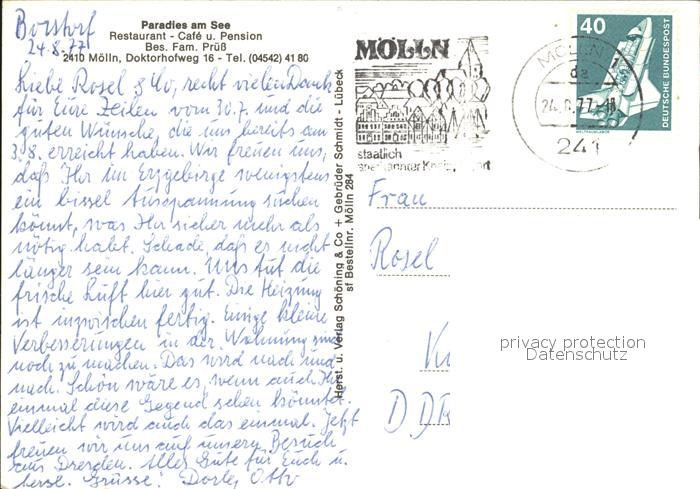 Borstorf
24.8.77
Paradies am See
Restaurant - Café u. Pension
Bes. Fam. Prüß
2410 Mölln, Doktorhofweg 16 - Tel. (04542) 41 80
Liebe Rosel & Uo, recht vielen Dank
für Eure Zeilen vom 30.7. und die
guten Wünsche, die uns bereits am
3.8. erreicht haben. Wir freuen uns,
daß Ihr im Erzgebirge wenigstens
ein bissel Ausspannung suchen
könnt, was Ihr sicher mehr als
nötig habt. Schade, daß es nicht
länger sein kann. Uns tut die
frische Luft hier gut. Die Heizung
ist inzwischen fertig. Einige kleine
Verbesserungen in der Wohnung sind
noch zu machen. Das wird nach und
nach. Schön wäre es, wenn auch Ihr
einmal diese Gegend sehen könntet.
Vielleicht wird auch das einmal. Jetzt
freuen wir uns auf unsern Besuch
aus Dresden. Alles Gute für Euch u.
herzl. Grüsse! Dorle, Otto
Herst. u. Verlag Schöning & Co + Gebrüder Schmidt - Lübeck
sf Bestellnr. Mölln 284
MÖLLN
staatlich
anerkannter Kneippkurort
MÖLLN 1
da
24.8.77-18
241
40
DEUTSCHE BUNDESPOST
WELTRAUMLABOR
Frau
Rosel
DDR
privacy protection
Datenschutz